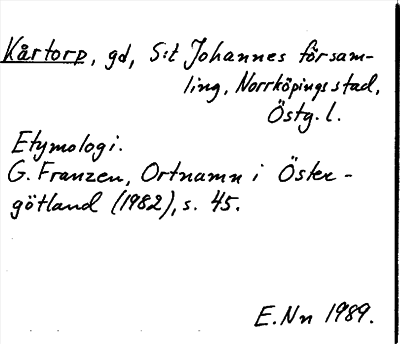 Kårtorp, gd, S:t Johannes försam-
ling, Norrköpings stad,
Östg. l.
Etymologi.
G. Franzen, Ortnamn i Öster-
götland (1982), s. 45.
E. Nn 1989.